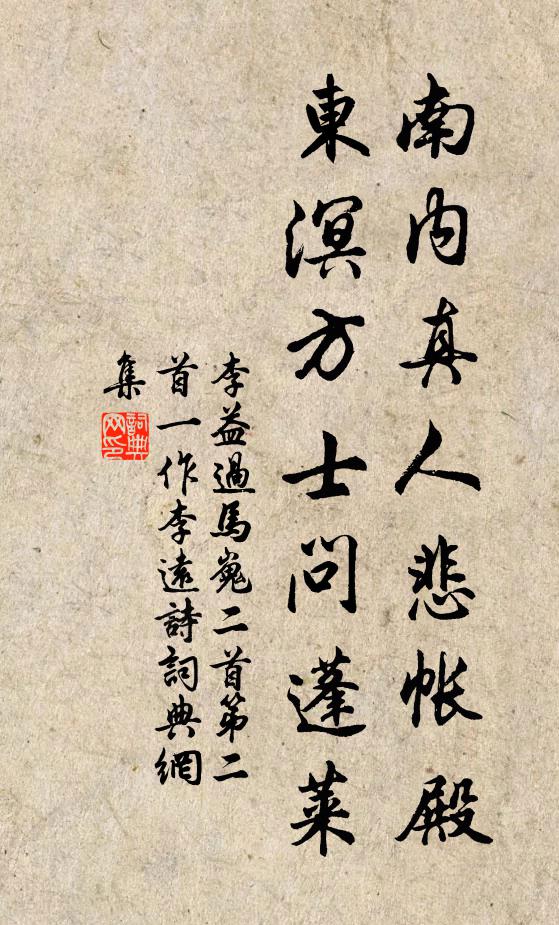 南内真人悲帐殿
東溟方士問蓬萊
李益過馬嵬二首第二
首一作李遠詩詞典網
集
詞典網印